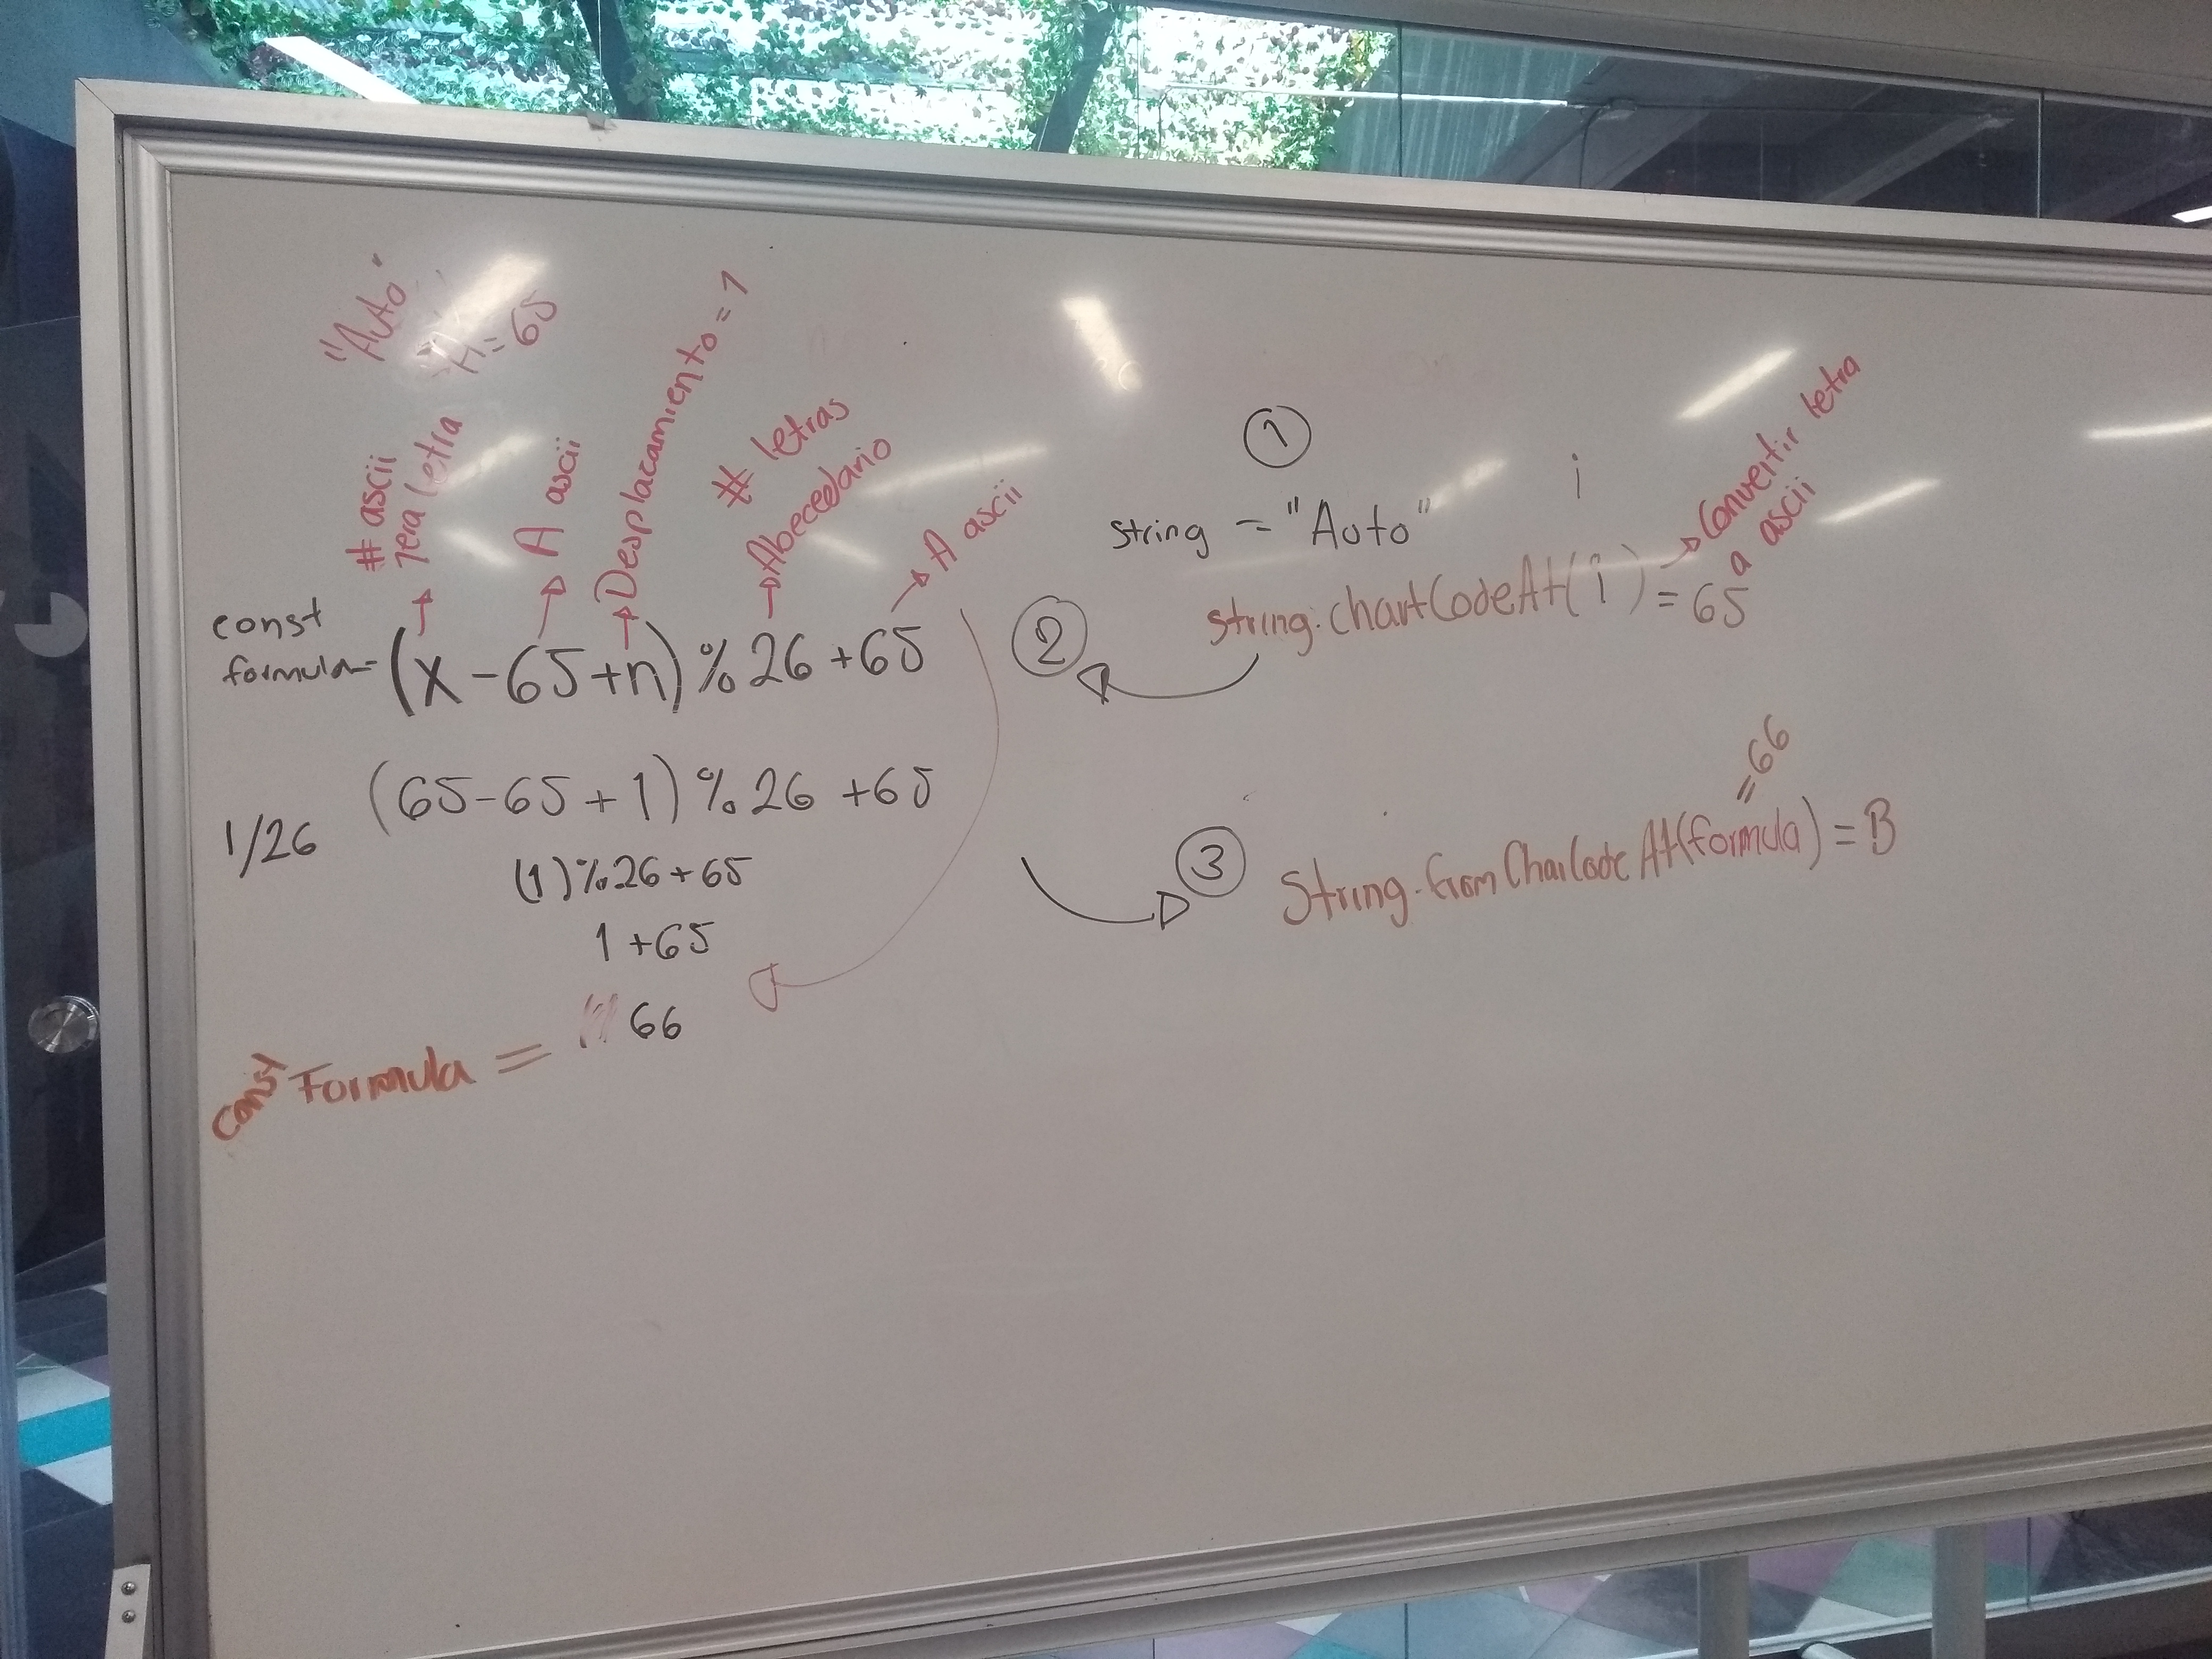 "Auto"
A=65
# ascii
1era letra
A ascii
Desplacamiento = 1
# letras
Abecedario
A ascii
const
formula= (x-65+n)%26+65
(65-65+1)%26+65
1/26
(1)%26+65
1+65
66
const Formula =
1
string = "Auto"
i
2
string.chartCodeAt(i)=65
Convertir letra
a ascii
3
String.fromCharCodeAt(formula)=B
=66